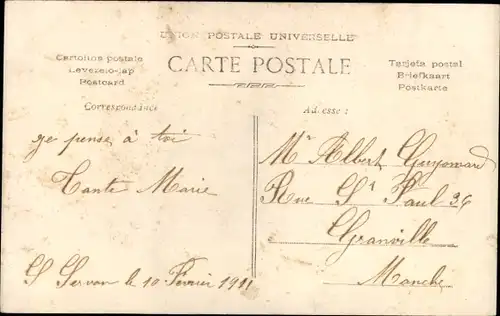 UNION POSTALE UNIVERSELLE
CARTE POSTALE
Cartolina postale
Levelezö-lap
Postcard
Tarjeta postal
Briefkaart
Postkarte
Correspondance
Adresse :
je pense à toi
Tante Marie
S Servan le 10 Février 1911
Mr Albert Guyomard
Rue St Paul 36
Granville
Manche